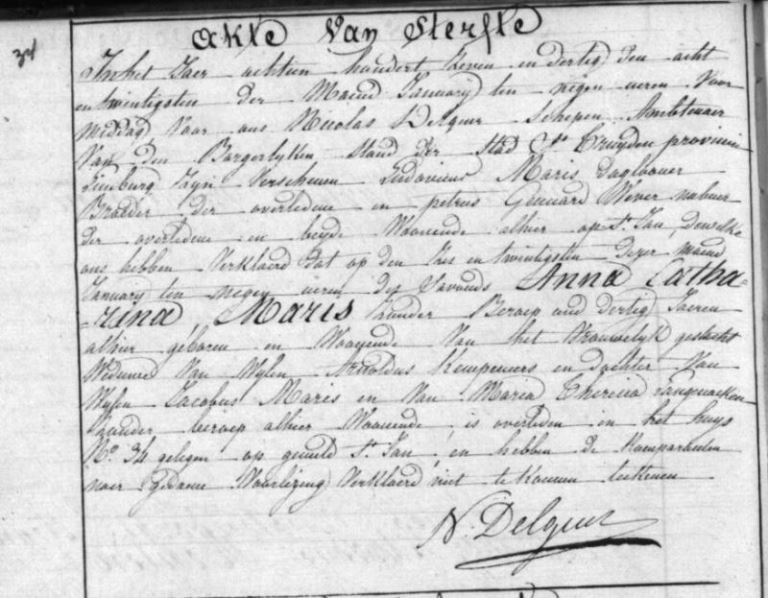 34
Akte Van Sterfte
In het Jaer achtien hundert Zeven en dertig den acht
en twintigsten der Maend January ten negen ueren Voor
middag Voor ons Nicolas Delgeur Schepen Ambtenaer
Van den Borgerlyken Stand der Stad St Truyden provincie
Limburg Zyn Verschenen Ludovicus Maris daglooner
Broeder der overledene en petrus Wever nabuer
der overledene en beyde Woonende alhier op St Jan, dewelke
ons hebben Verklaerd dat op den Zes en twintigsten dezer maend
January ten negen ueren des avonds Anna Catha-
-rina Maris Zonder Beroep oud dertig Jaeren
alhier geboren en Woonende Van het Vrouwelyk geslacht
Weduwe Van Wylen Arnoldus Kempeneers en dochter Van
Wylen Jacobus Maris en Van Maria Theresia
Zonder beroep alhier Woonende, is overleden in het huys
No 34 gelegen op gemeld St Jan, en hebben de komparanten
naer gedaene Voorlezing Verklaerd niet te konnen teekenen
N. Delgeur